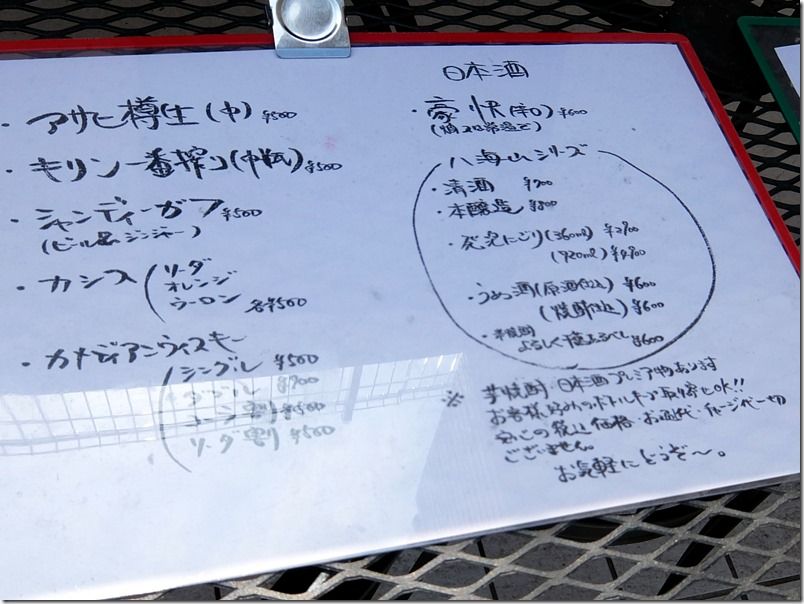 ・アサヒ樽生(中) ¥500
・キリン一番搾り(中瓶) ¥500
・シャンディーガフ ¥500
(ビール&ジンジャー)
・カシス
ソーダ
オレンジ
ウーロン 各¥500
・カナディアンウィスキー
シングル ¥500
ダブル ¥700
コーラ割 ¥500
ソーダ割り ¥500
日本酒
・豪快(辛口) ¥600
八海山シリーズ
・清酒 ¥700
・本醸造 ¥800
・発泡にごり(360ml)
(720ml)
・うめ酒(原酒仕込) ¥600
(焼酎仕込) ¥600
・本格焼酎
よろしく千萬あるべし ¥600
※ 芋焼酎・日本酒プレミア物あります
お客様好みのボトルキープ取り寄せOK!!
税込価格・お通代・チャージ代一切
ございません。
お気軽にどうぞ〜。